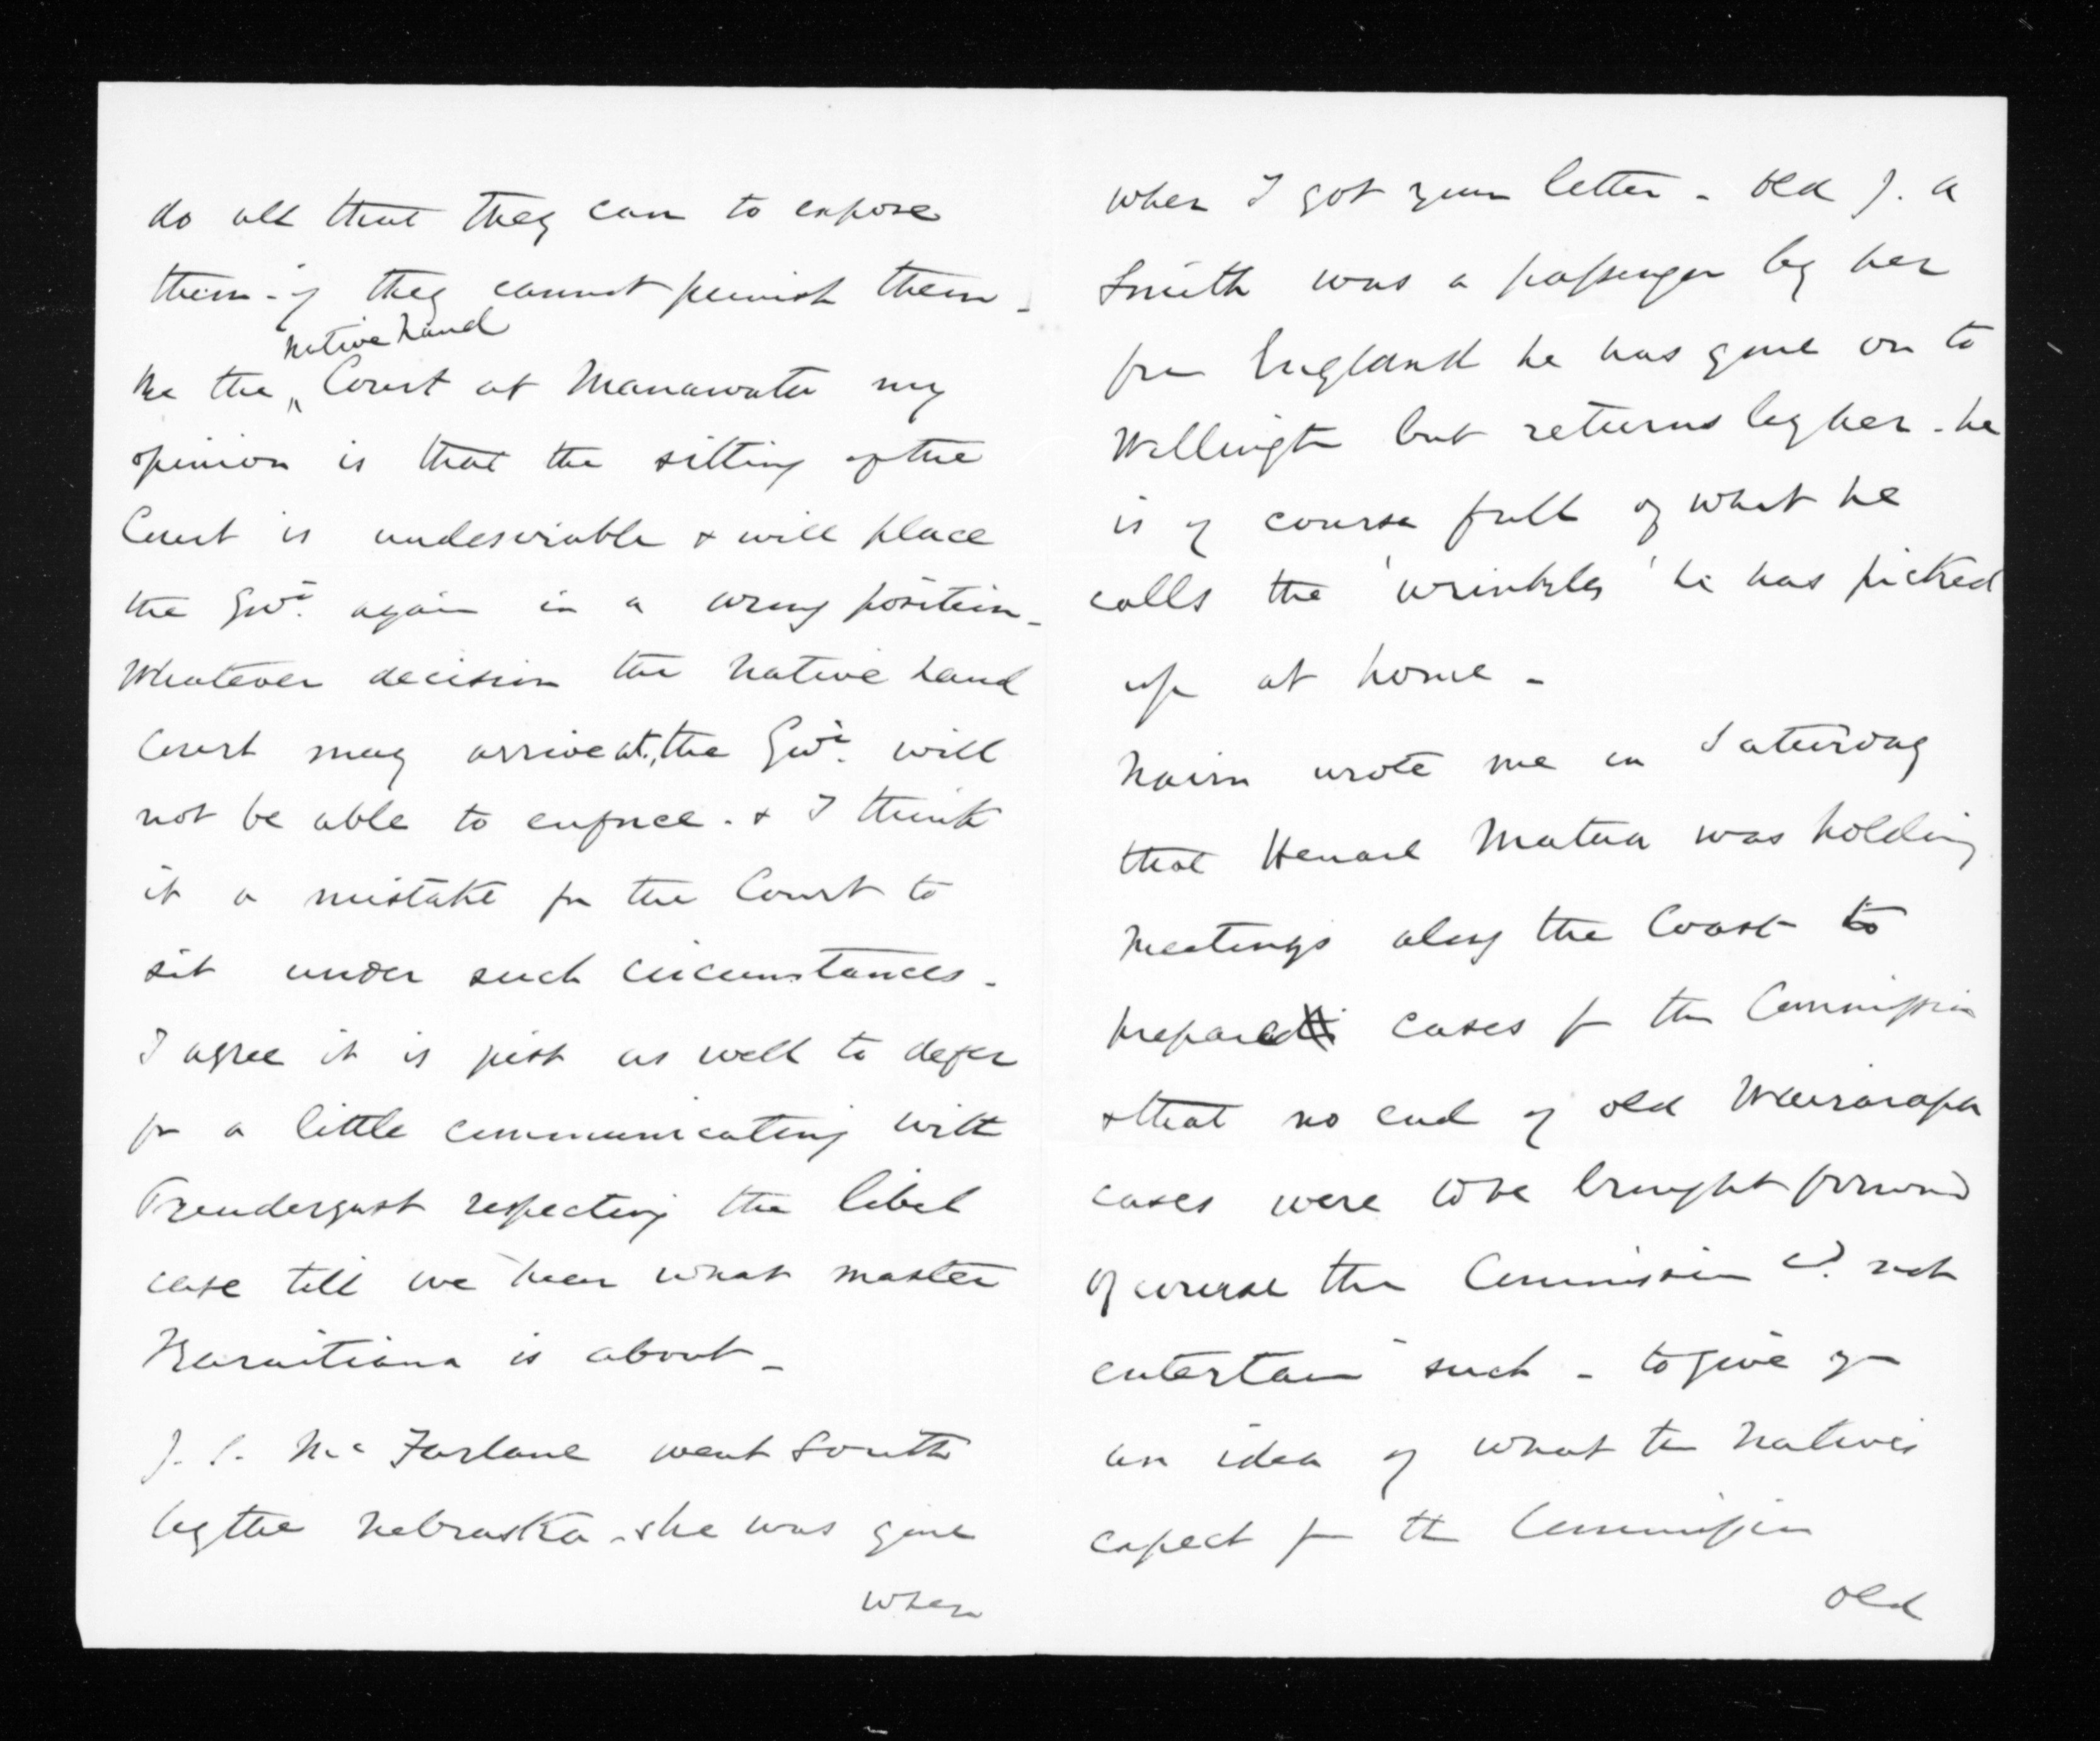 do all that they can to expose
them - if they cannot punish them -
Re the Native Land Court at Manawatu my
opinion is that the sitting of the
Court is undesirable & will place
the Govt. again in a wrong position -
Whatever decision the Native Land
Court may arrive at, the Govt. will
not be able to enforce. & I think
it a mistake for the Court to
sit under such circumstances -
I agree it is just as well to defer
for a little communicating with
Prendergast respecting the libel
case till we hear what master
Karaitiana is about -
J. C. McFarlane went South
by the Nebraska - she was gone
when
when I got your letter - Old J. A
Smith was a passenger by her
from England he has gone on to
Wellington but returns by her - he
is of course full of what he
calls the 'wrinkles' he has picked
up at home -
Nairn wrote me on Saturday
that Henare Matua was holding
meetings along the Coast to
prepare cases for the Commission
& that no end of old Wairarapa
cases were to be brought forward
of course the Commission cd. not
entertain such - to give you
an idea of what the Natives
expect from the Commission
old